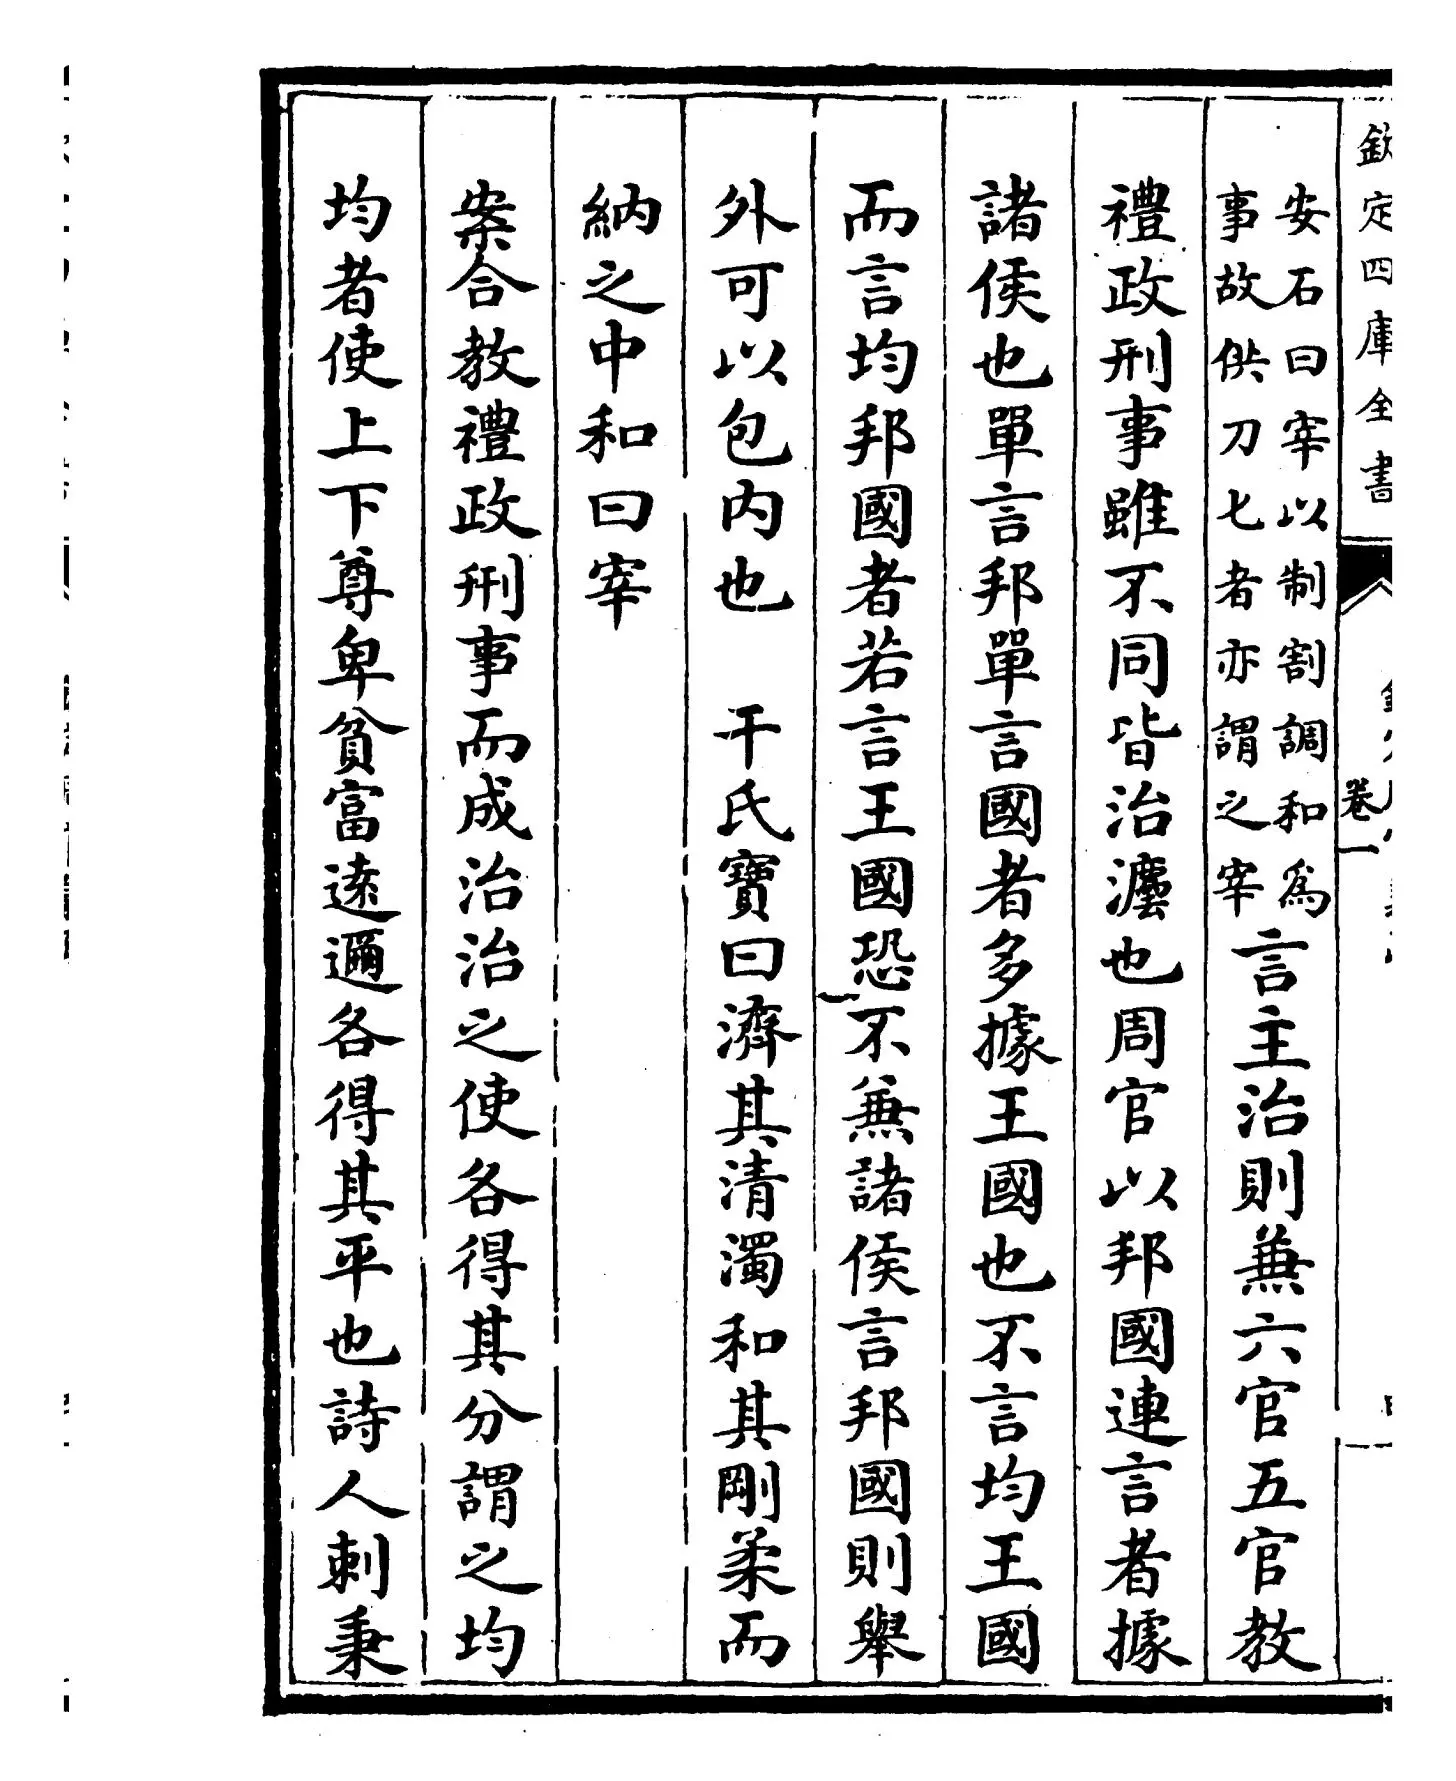 欽定四庫全書
卷一
安石曰宰以制割調和為
事故供刀匕者亦謂之宰
言主治則兼六官五官教
禮政刑事雖不同皆治灋也周官以邦國連言者據
諸侯也單言邦單言國者多據王國也不言均王國
而言均邦國者若言王國恐不兼諸侯言邦國則舉
外可以包内也　干氏寶曰濟其清濁和其剛柔而
納之中和曰宰
案合教禮政刑事而成治治之使各得其分謂之均
均者使上下尊卑貧富逺邇各得其平也詩人刺秉